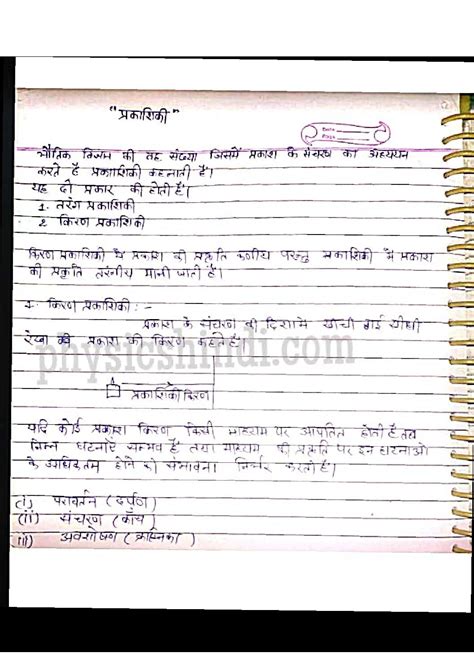 "प्रकाशिकी"
Date
Page
भौतिक विज्ञान की वह संख्या जिसमें प्रकाश के संचरण का अध्ययन
करते है प्रकाशिकी कहलाती है।
यह दो प्रकार की होती है।
1. तरंग प्रकाशिकी
2 किरण प्रकाशिकी
किरण प्रकाशिकी में प्रकाश की प्रकृति कणीय परन्तु प्रकाशिकी में प्रकाश
की प्रकृति तरंगीय मानी जाती है।
1. किरण प्रकाशिकी :-
प्रकाश के संचरण की दिशा में खींची गई सीधी
रेखा को प्रकाश की किरण कहते है।
physicshindi.com
प्रकाशिकी किरण
यदि कोई प्रकाश किरण किसी माध्यम पर आपतित होती है तब
निम्न घटनाएँ सम्भव है तथा माध्यम की प्रकृति पर इन घटनाओ
के अधिकतम होने की संभावना निर्भर करती है।
(i) परावर्तन (दर्पण)
(ii) संचरण (काँच)
iii) अवशोषण (